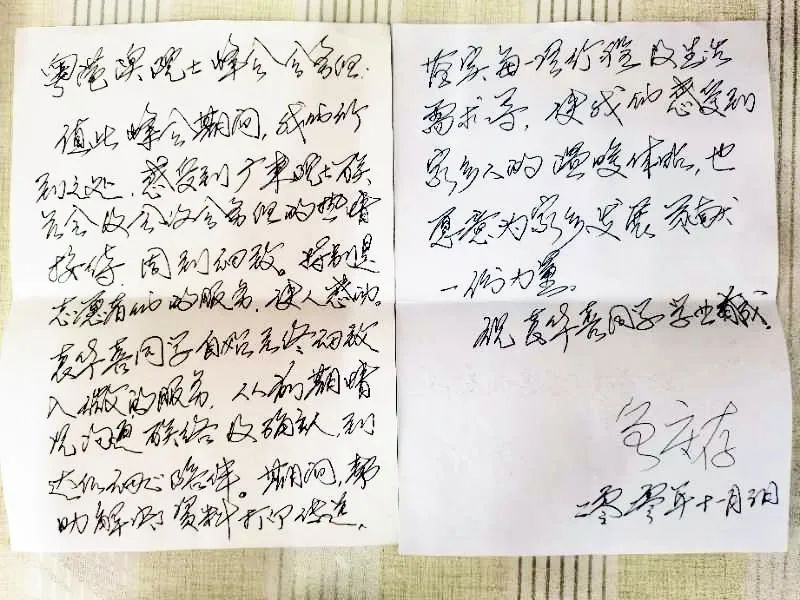 粤港澳院士峰会会务组:
值此峰会期间,我们所
到之处,感受到广东院士联
合会及会议会务组的热情
接待,周到细致。特别是
志愿者们的服务,使人感动。
袁华喜同学自始至终细致
入微的服务,从前期情
况沟通联络及确认,到
达后细心陪伴。期间,帮
助解决资料打印传送,
落实每一项行程及生活
需求等,使我们感受到
家乡人的温暖体贴,也
愿意为家乡发展贡献
一份力量。
祝袁华喜同学学业有成。
年十一月